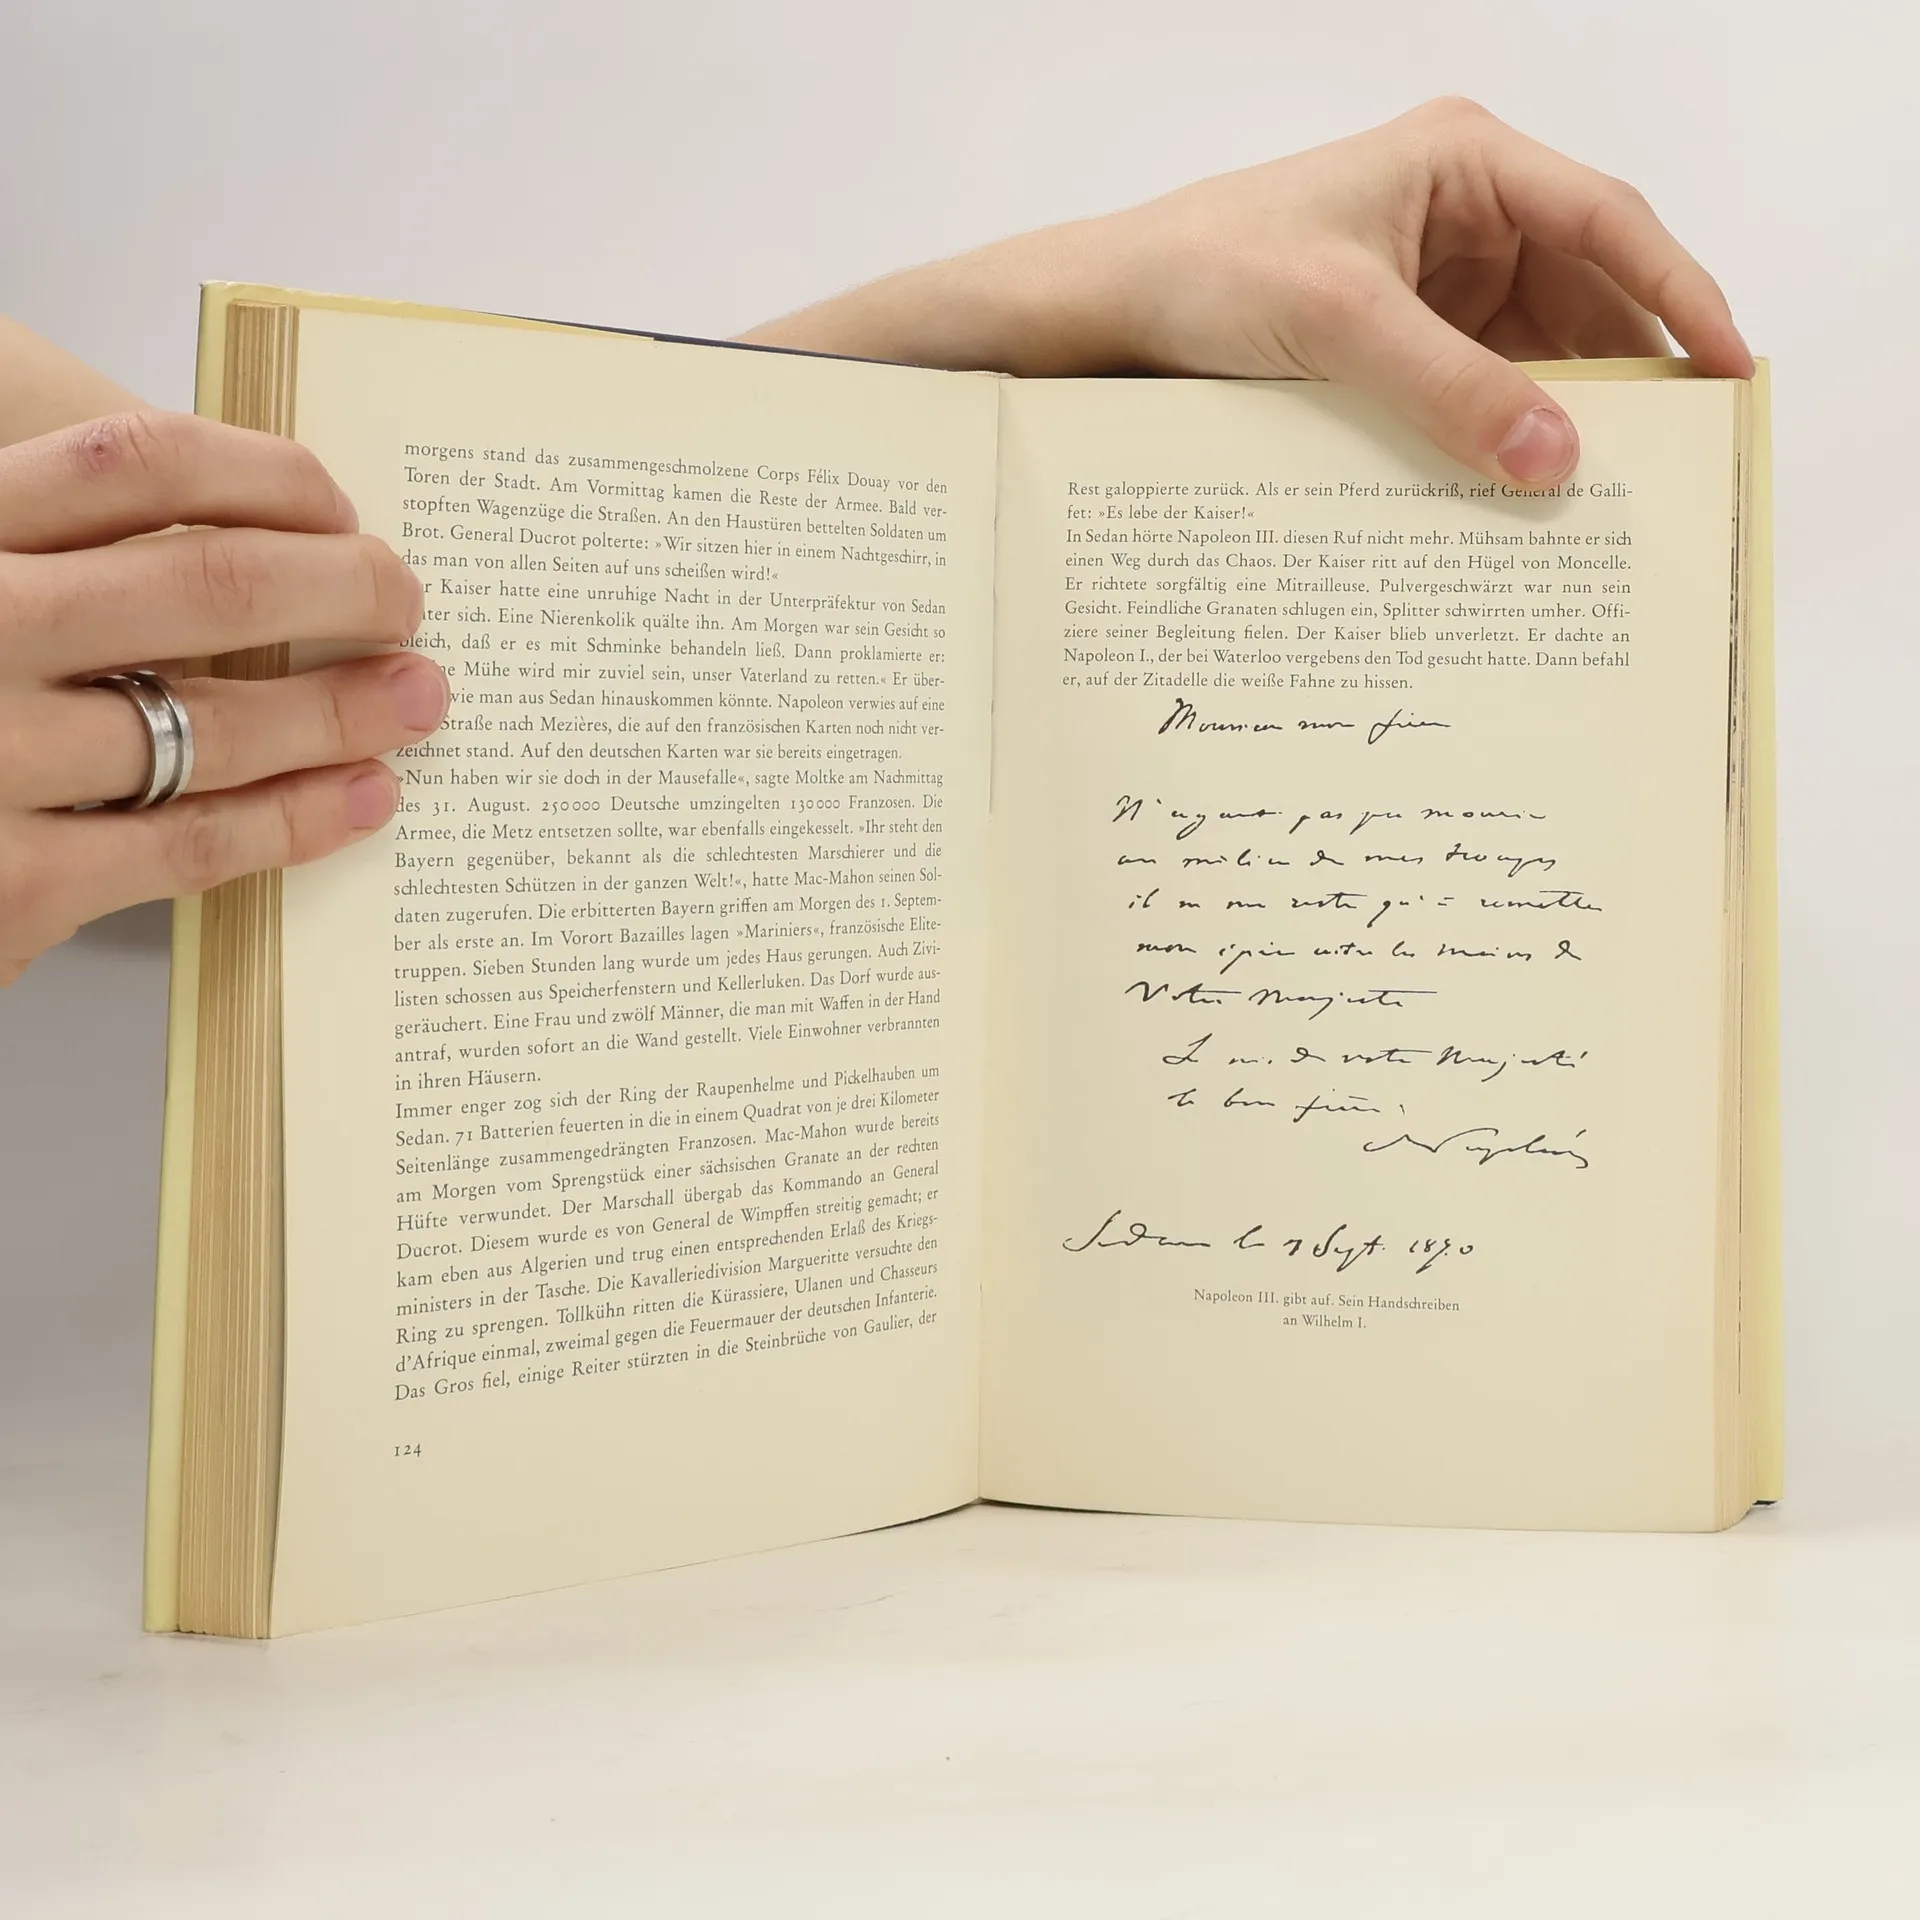 morgens stand das zusammengeschmolzene Corps Félix Douay vor den
Toren der Stadt. Am Vormittag kamen die Reste der Armee. Bald ver-
stopften Wagenzüge die Straßen. An den Haustüren bettelten Soldaten um
Brot. General Ducrot polterte: »Wir sitzen hier in einem Nachtgeschirr, in
das man von allen Seiten auf uns scheißen wird!«
r Kaiser hatte eine unruhige Nacht in der Unterpräfektur von Sedan
ter sich. Eine Nierenkolik quälte ihn. Am Morgen war sein Gesicht so
bleich, daß er es mit Schminke behandeln ließ. Dann proklamierte er:
ne Mühe wird mir zuviel sein, unser Vaterland zu retten.« Er über-
wie man aus Sedan hinauskommen könnte. Napoleon verwies auf eine
Straße nach Mezières, die auf den französischen Karten noch nicht ver-
zeichnet stand. Auf den deutschen Karten war sie bereits eingetragen.
»Nun haben wir sie doch in der Mausefalle«, sagte Moltke am Nachmittag
des 31. August. 250000 Deutsche umzingelten 130000 Franzosen. Die
Armee, die Metz entsetzen sollte, war ebenfalls eingekesselt. »Ihr steht den
Bayern gegenüber, bekannt als die schlechtesten Marschierer und die
schlechtesten Schützen in der ganzen Welt!«, hatte Mac-Mahon seinen Sol-
daten zugerufen. Die erbitterten Bayern griffen am Morgen des 1. Septem-
ber als erste an. Im Vorort Bazailles lagen »Mariniers«, französische Elite-
truppen. Sieben Stunden lang wurde um jedes Haus gerungen. Auch Zivi-
listen schossen aus Speicherfenstern und Kellerluken. Das Dorf wurde aus-
geräuchert. Eine Frau und zwölf Männer, die man mit Waffen in der Hand
antraf, wurden sofort an die Wand gestellt. Viele Einwohner verbrannten
in ihren Häusern.
Immer enger zog sich der Ring der Raupenhelme und Pickelhauben um
Sedan. 71 Batterien feuerten in die in einem Quadrat von je drei Kilometer
Seitenlänge zusammengedrängten Franzosen. Mac-Mahon wurde bereits
am Morgen vom Sprengstück einer sächsischen Granate an der rechten
Hüfte verwundet. Der Marschall übergab das Kommando an General
Ducrot. Diesem wurde es von General de Wimpffen streitig gemacht; er
kam eben aus Algerien und trug einen entsprechenden Erlaß des Kriegs-
ministers in der Tasche. Die Kavalleriedivision Margueritte versuchte den
Ring zu sprengen. Tollkühn ritten die Kürassiere, Ulanen und Chasseurs
d'Afrique einmal, zweimal gegen die Feuermauer der deutschen Infanterie.
Das Gros fiel, einige Reiter stürzten in die Steinbrüche von Gaulier, der
124
Rest galoppierte zurück. Als er sein Pferd zurückriß, rief General de Galli-
fet: »Es lebe der Kaiser!«
In Sedan hörte Napoleon III. diesen Ruf nicht mehr. Mühsam bahnte er sich
einen Weg durch das Chaos. Der Kaiser ritt auf den Hügel von Moncelle.
Er richtete sorgfältig eine Mitrailleuse. Pulvergeschwärzt war nun sein
Gesicht. Feindliche Granaten schlugen ein, Splitter schwirrten umher. Offi-
ziere seiner Begleitung fielen. Der Kaiser blieb unverletzt. Er dachte an
Napoleon I., der bei Waterloo vergebens den Tod gesucht hatte. Dann befahl
er, auf der Zitadelle die weiße Fahne zu hissen.
Monsieur mon frère
N'ayant pas pu mourir
au milieu de mes troupes
il ne me reste qu'à remettre
mon épée entre les mains de
Votre Majesté
Je suis de votre Majesté
le bon frère
Napoléon
Sedan le 1 Sept. 1870
Napoleon III. gibt auf. Sein Handschreiben
an Wilhelm I.